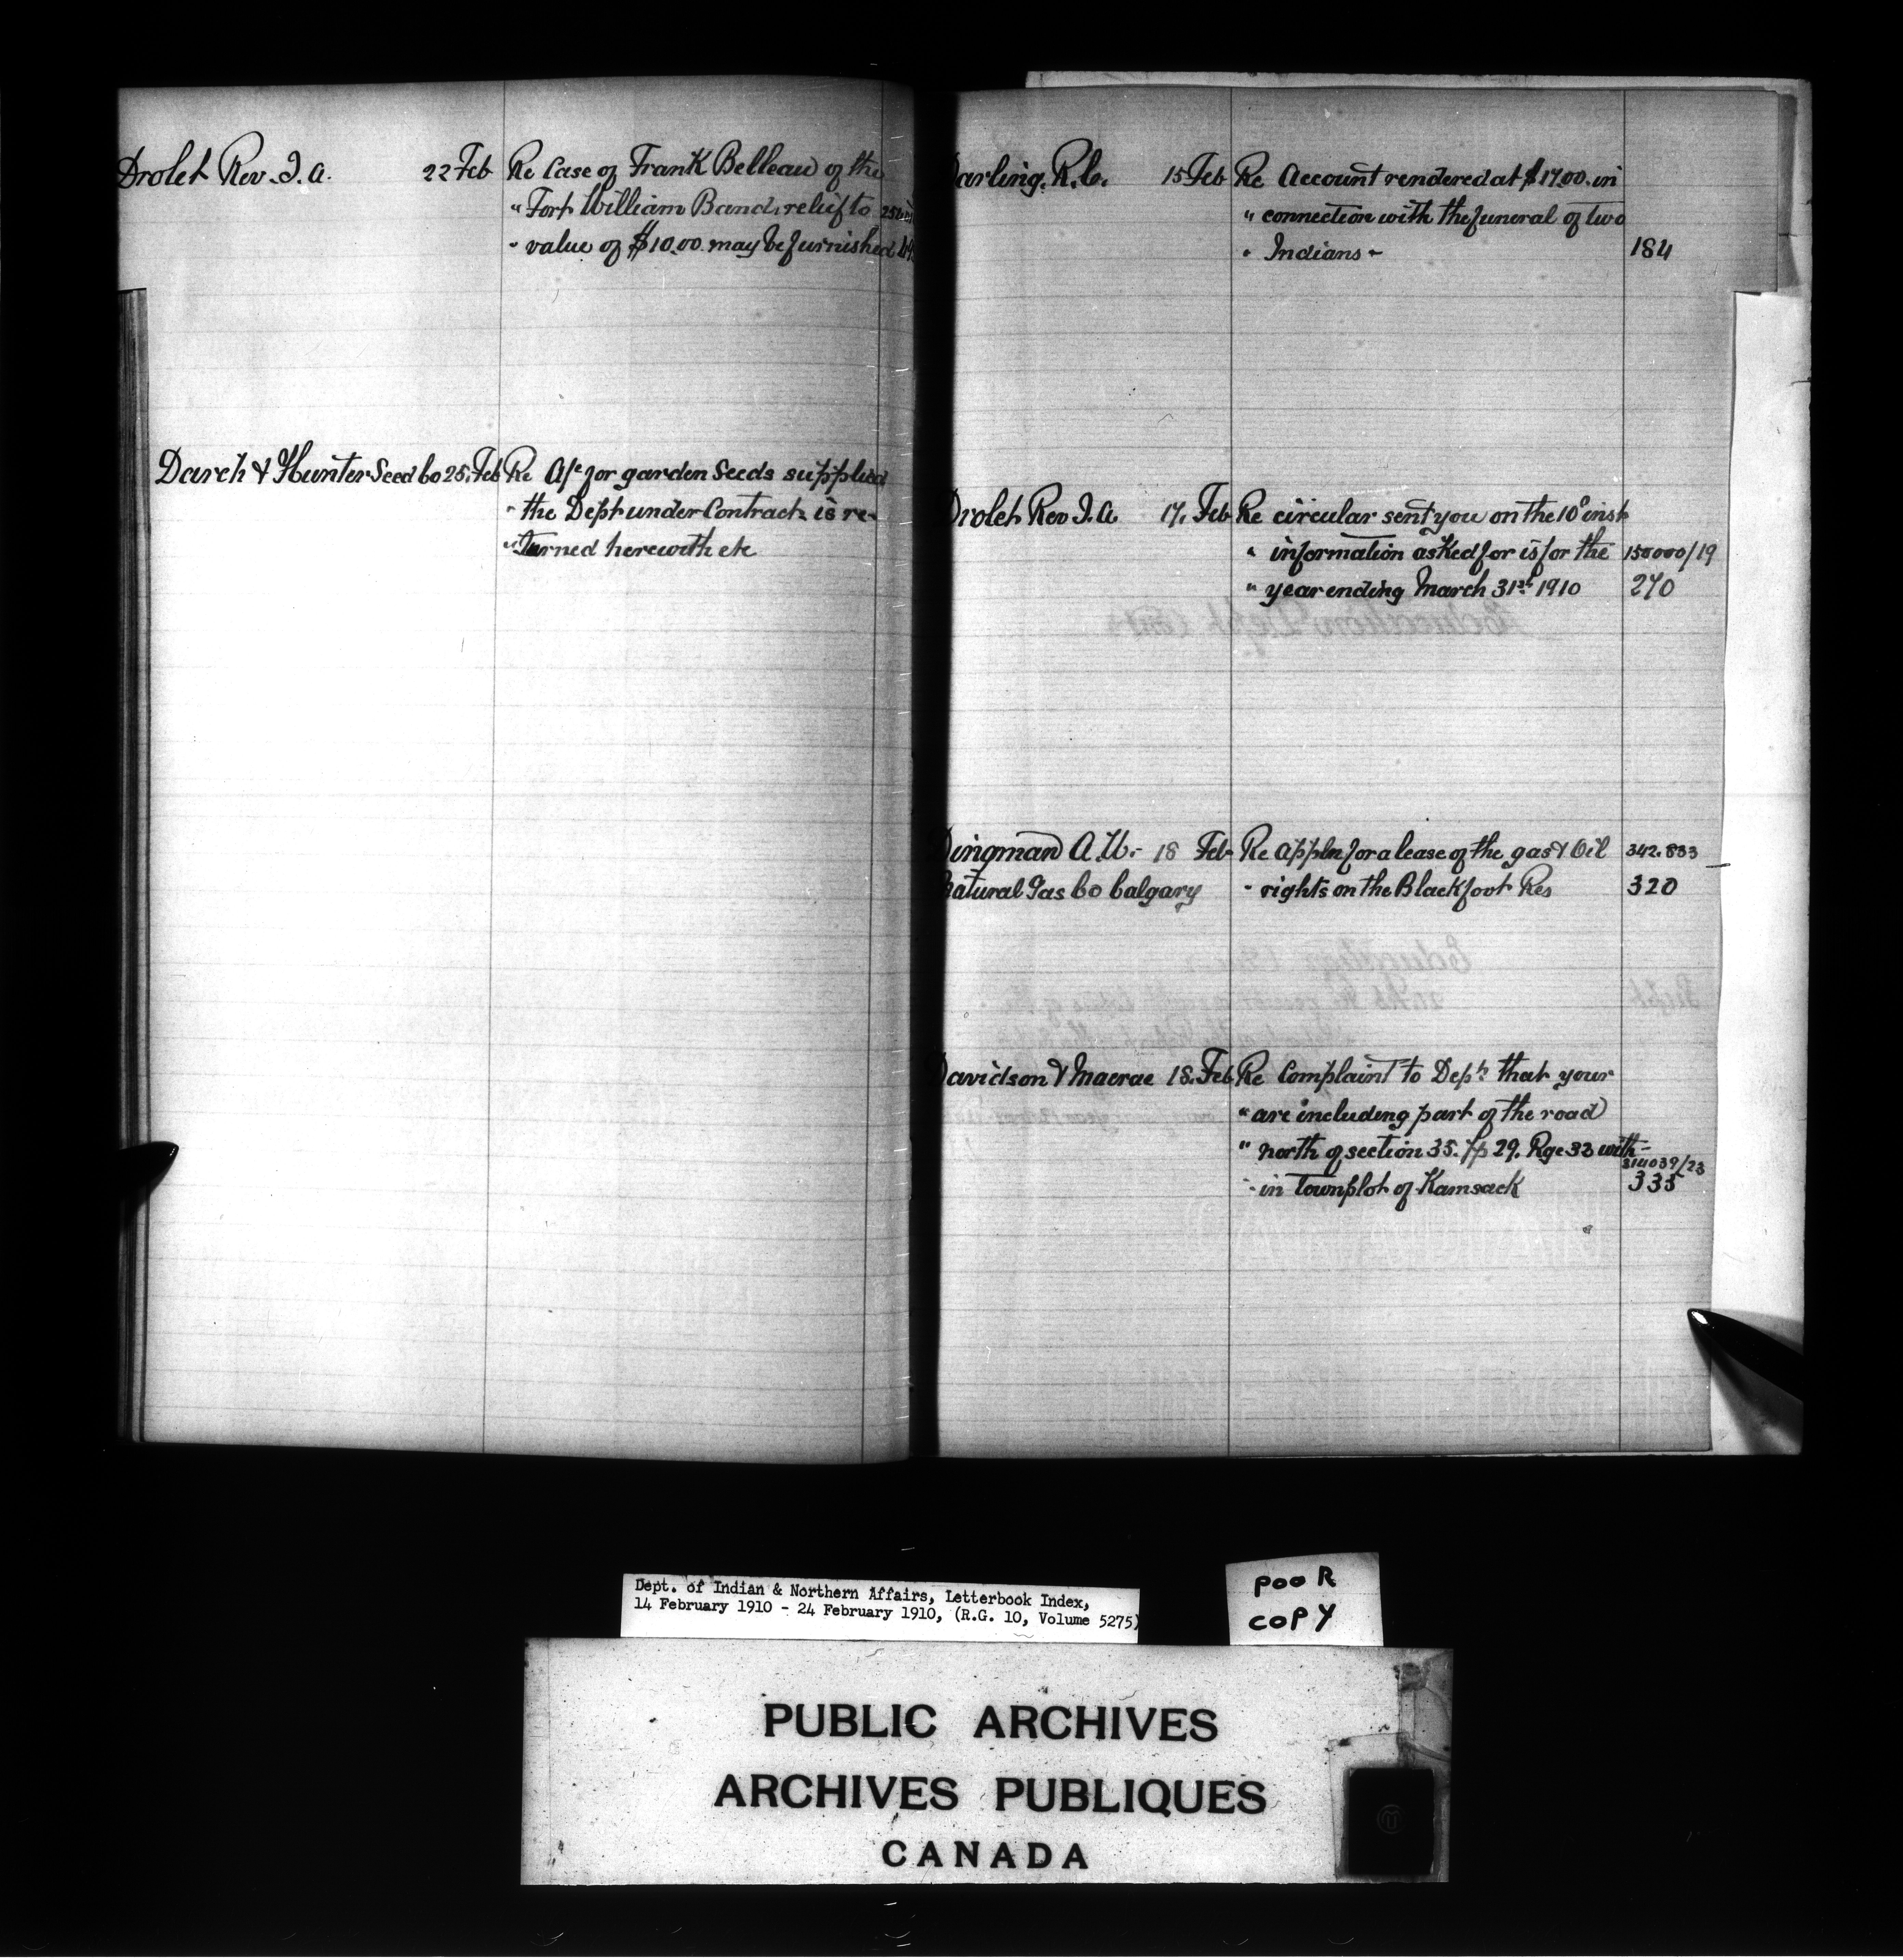 Drolet Rev. J. A. 22 Feb Re Case of Frank Belleau of the
" Fort William Band, relief to
" value of $10.00 may be furnished
Darch & Hunter Seed Co 25. Feb Re A/c for garden Seeds supplied
" the Dept under Contract is re-
" turned herewith etc
Darling. R. C. 15 Feb Re Account rendered at $17.00. in
" connection with the funeral of two
" Indians - 184
Drolet Rev J. A 17. Feb Re circular sent you on the 10th inst
" information asked for is for the 150000/19
" year ending March 31st 1910 270
Dingman A. W. - 18 Feb Re Appln for a lease of the gas & Oil 342.833
Natural Gas Co Calgary " rights on the Blackfoot Res 320
Davidson & Macrae 18. Feb Re Complaint to Dept. that your
" are including part of the road
" north of section 35. Tp 29. Rge 32 with- 314039/23
" in townplot of Kamsack 335
Dept. of Indian & Northern Affairs, Letterbook Index,
14 February 1910 - 24 February 1910, (R.G. 10, Volume 5275)
POOR
COPY
PUBLIC ARCHIVES
ARCHIVES PUBLIQUES
CANADA